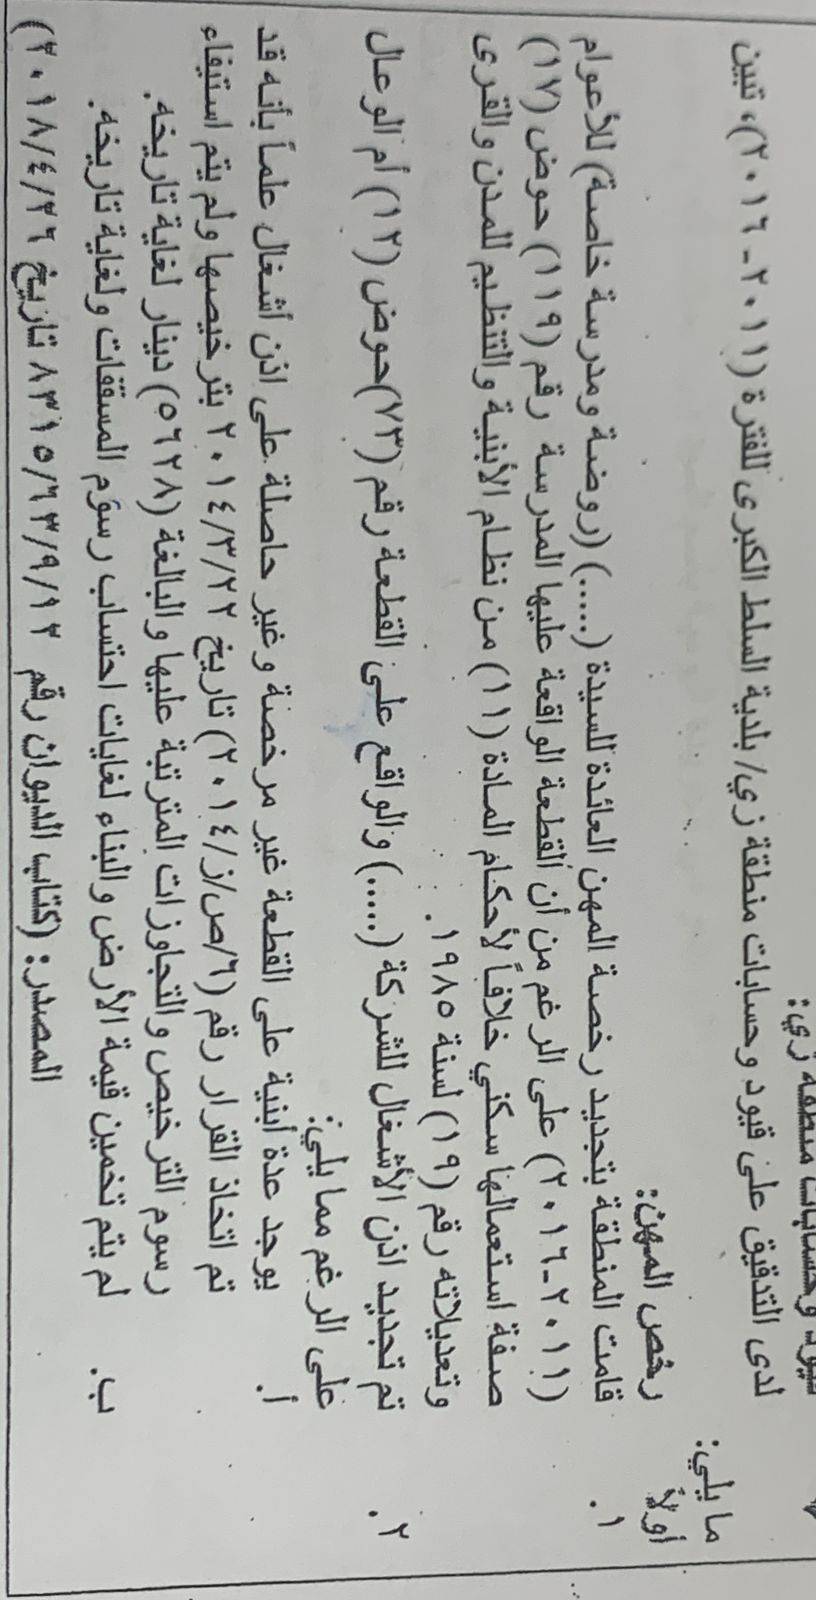 قيود وحسابات منطقة زي:
لدى التدقيق على قيود وحسابات منطقة زي/ بلدية السلط الكبرى للفترة (٢٠١١-٢٠١٦)، تبين
ما يلي:
أولاً رخص المهن:
١. قامت المنطقة بتجديد رخصة المهن العائدة للسيدة (.....) (روضة ومدرسة خاصة) للأعوام
(٢٠١١-٢٠١٦) على الرغم من أن القطعة الواقعة عليها المدرسة رقم (١١٩) حوض (١٧)
صفة استعمالها سكني خلافاً لأحكام المادة (١١) من نظام الأبنية والتنظيم للمدن والقرى
وتعديلاته رقم (١٩) لسنة ١٩٨٥.
٢. تم تجديد اذن الأشغال للشركة (.....) والواقع على القطعة رقم (٧٣)حوض (١٢) أم الوعال
على الرغم مما يلي:
أ. يوجد عدة أبنية على القطعة غير مرخصة وغير حاصلة على اذن أشغال علماً بأنه قد
تم اتخاذ القرار رقم (٦/ص/ز/٢٠١٤) تاريخ ٢٠١٤/٣/٢٢ بترخيصها ولم يتم استيفاء
رسوم الترخيص والتجاوزات المترتبة عليها والبالغة (٥٦٢٨) دينار لغاية تاريخه.
ب. لم يتم تخمين قيمة الأرض والبناء لغايات احتساب رسوم المسقفات ولغاية تاريخه.
المصدر: (كتاب الديوان رقم ٨٣١٥/٦٣/٩/١٢ تاريخ ٢٠١٨/٤/٢٦)